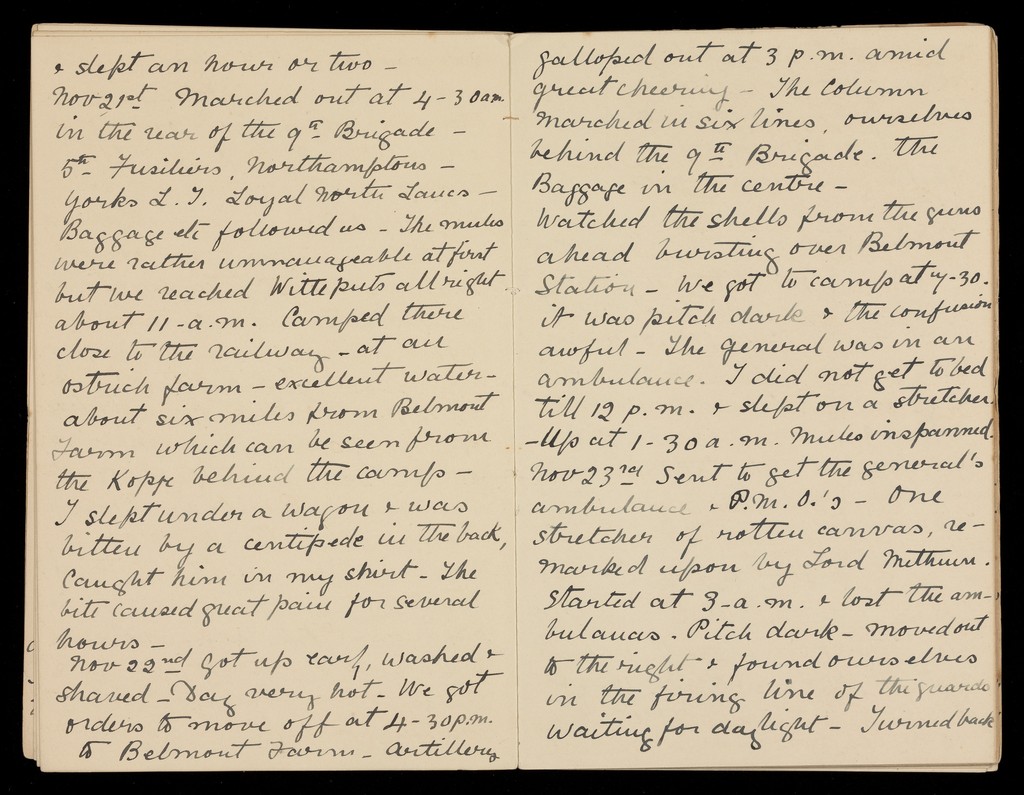 & slept an hour or two –
Nov 21st Marched out at 4-30 am.
in the rear of the 9th Brigade –
5th Fusiliers, Northamptons –
Yorks L.I. Loyal North Lancs –
Baggage etc followed us – The mules
were rather unmanageable at first
but we reached Witteputs all right
about 11-a.m. Camped there
close to the railway – at an
ostrich farm – excellent water –
about six miles from Belmont
Farm which can be seen from
the Kopje behind the camp –
I slept under a wagon & was
bitten by a centipede in the back,
Caught him in my shirt – The
bite caused great pain for several
hours –
Nov 22nd Got up early, washed &
shaved – Day very hot – We got
orders to move off at 4-30 p.m.
to Belmont Farm – artillery
galloped out at 3 p.m. amid
great cheering – The Column
marched in six lines, ourselves
behind the 9th Brigade. The
Baggage in the centre –
Watched the shells from the guns
ahead bursting over Belmont
Station – We got to camp at 7-30.
it was pitch dark & the confusion
awful – The general was in an
ambulance. I did not get to bed
till 12 p.m. & slept on a stretcher.
– Up at 1-30 a.m. Mules inspanned.
Nov 23rd Sent to get the general's
ambulance & P.M.O.'s – One
stretcher of rotten canvas, re-
marked upon by Lord Methuen.
Started at 3-a.m. & lost the am-
bulances. Pitch dark – moved out
to the right & found ourselves
in the firing line of the guards
waiting for daylight – Turned back